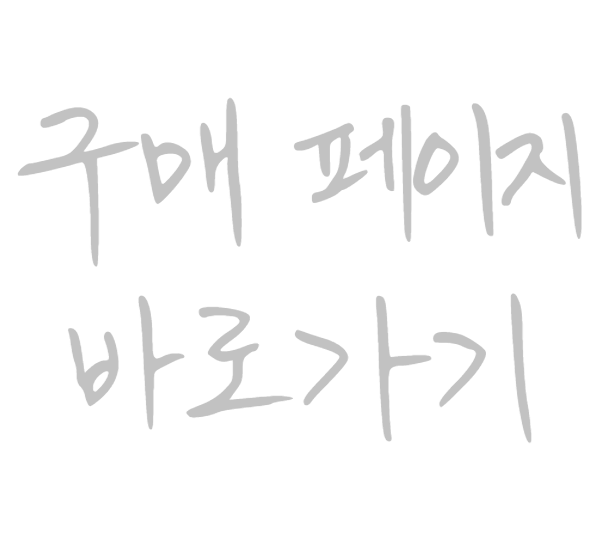 구매 페이지
바로가기